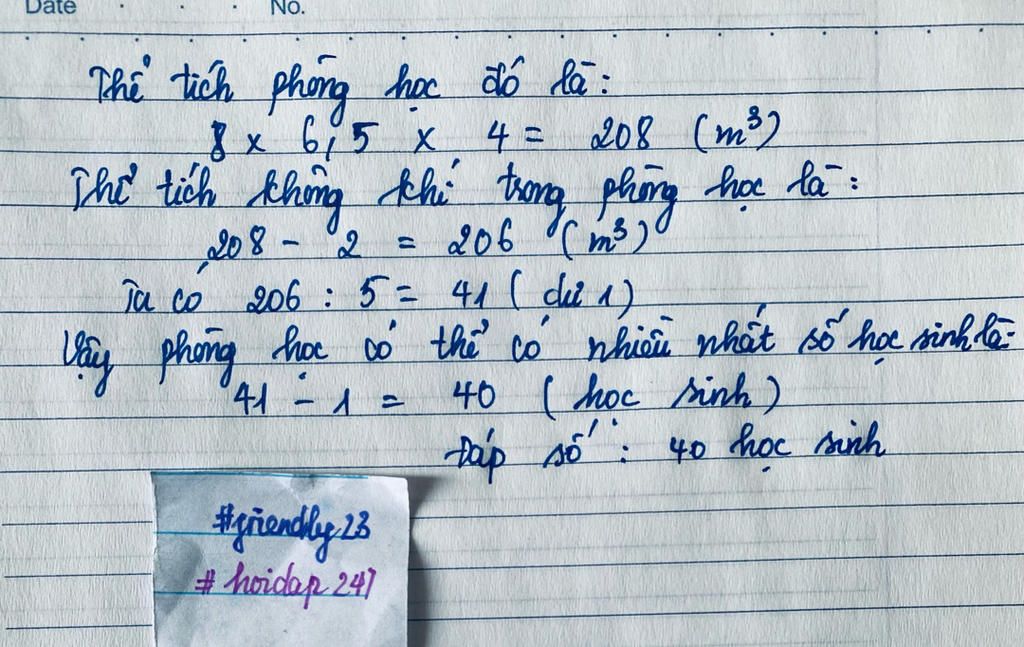 Date No.
Thể tích phòng học đó là:
8 x 6,5 x 4 = 208 (m³)
Thể tích không khí trong phòng học là:
208 - 2 = 206 (m³)
Ta có 206 : 5 = 41 (dư 1)
Vậy phòng học có thể có nhiều nhất số học sinh là:
41 - 1 = 40 (học sinh)
Đáp số : 40 học sinh
#friendly23
# hoidap 247